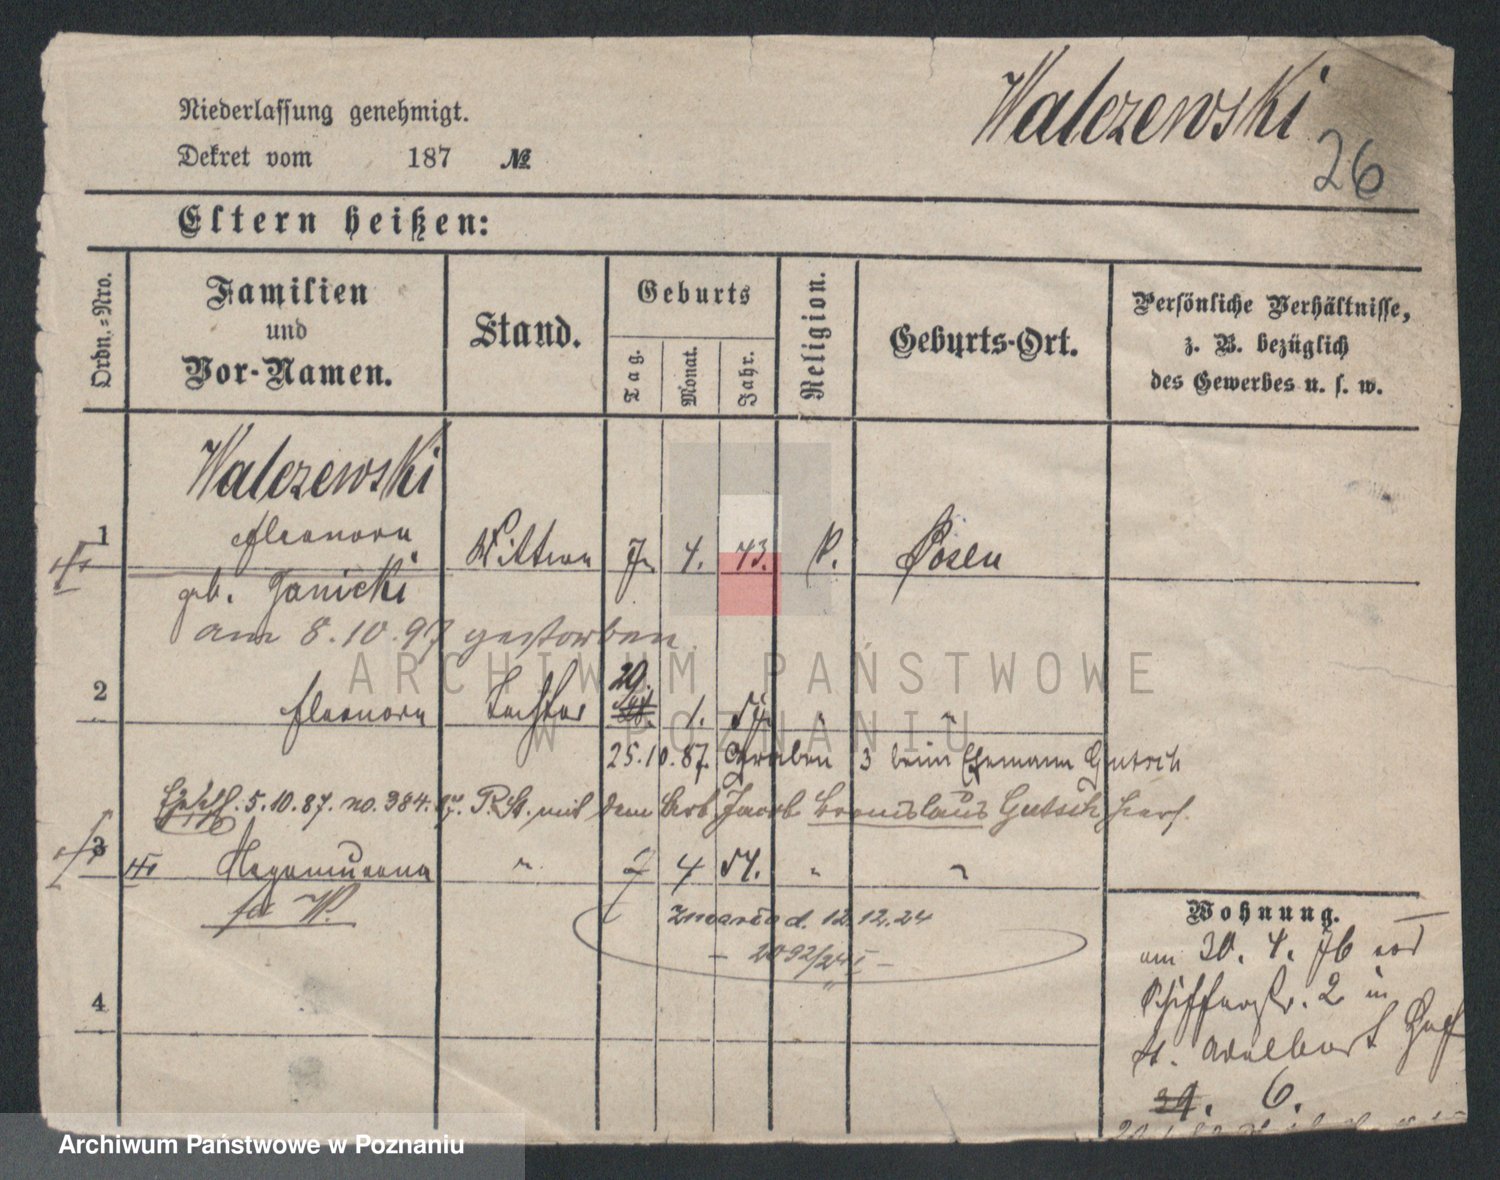 Walczewski
26
Niederlassung genehmigt.
Dekret vom 187 №
Eltern heißen:
Ordn.-Nro.
Familien und Vor-Namen.
Stand.
Geburts
Tag.
Monat.
Jahr.
Religion.
Geburts-Ort.
Persönliche Verhältnisse,
z. B. bezüglich
des Gewerbes u. s. w.
Walczewski
1 Eleonora Wittwe 7. 4. 43. K. Posen
geb. Janicki
am 8.10.97 gestorben.
2 Eleonora Tochter 29. 1.
25.10.87. Graben 3 beim Ehemann Gutsch
5.10.87. no. 384. mit dem Arb. Jacob Bronislaus Gutsch hier.
3 " 7 4 " "
zmarła d. 12.12.24
- 2092/24 I -
4
Wohnung.
am 30. 4. 76 von
Schifferstr. 2 in
St. Adalbert
6.
ARCHIWUM PAŃSTWOWE
W POZNANIU
Archiwum Państwowe w Poznaniu